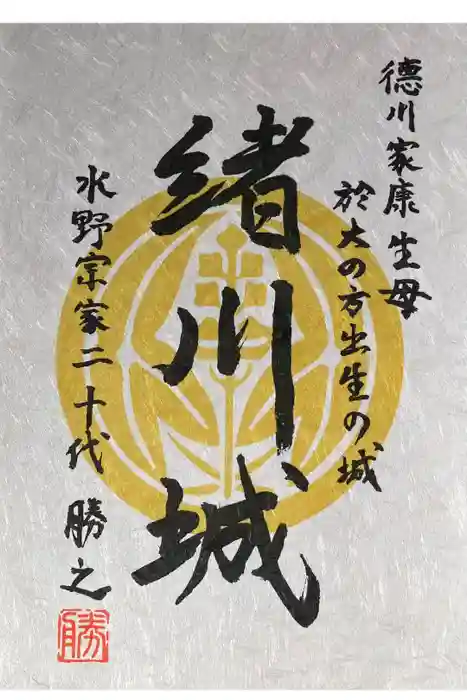 德川家康生母
於大の方出生の城
緒川城
水野宗家二十代 勝之
勝